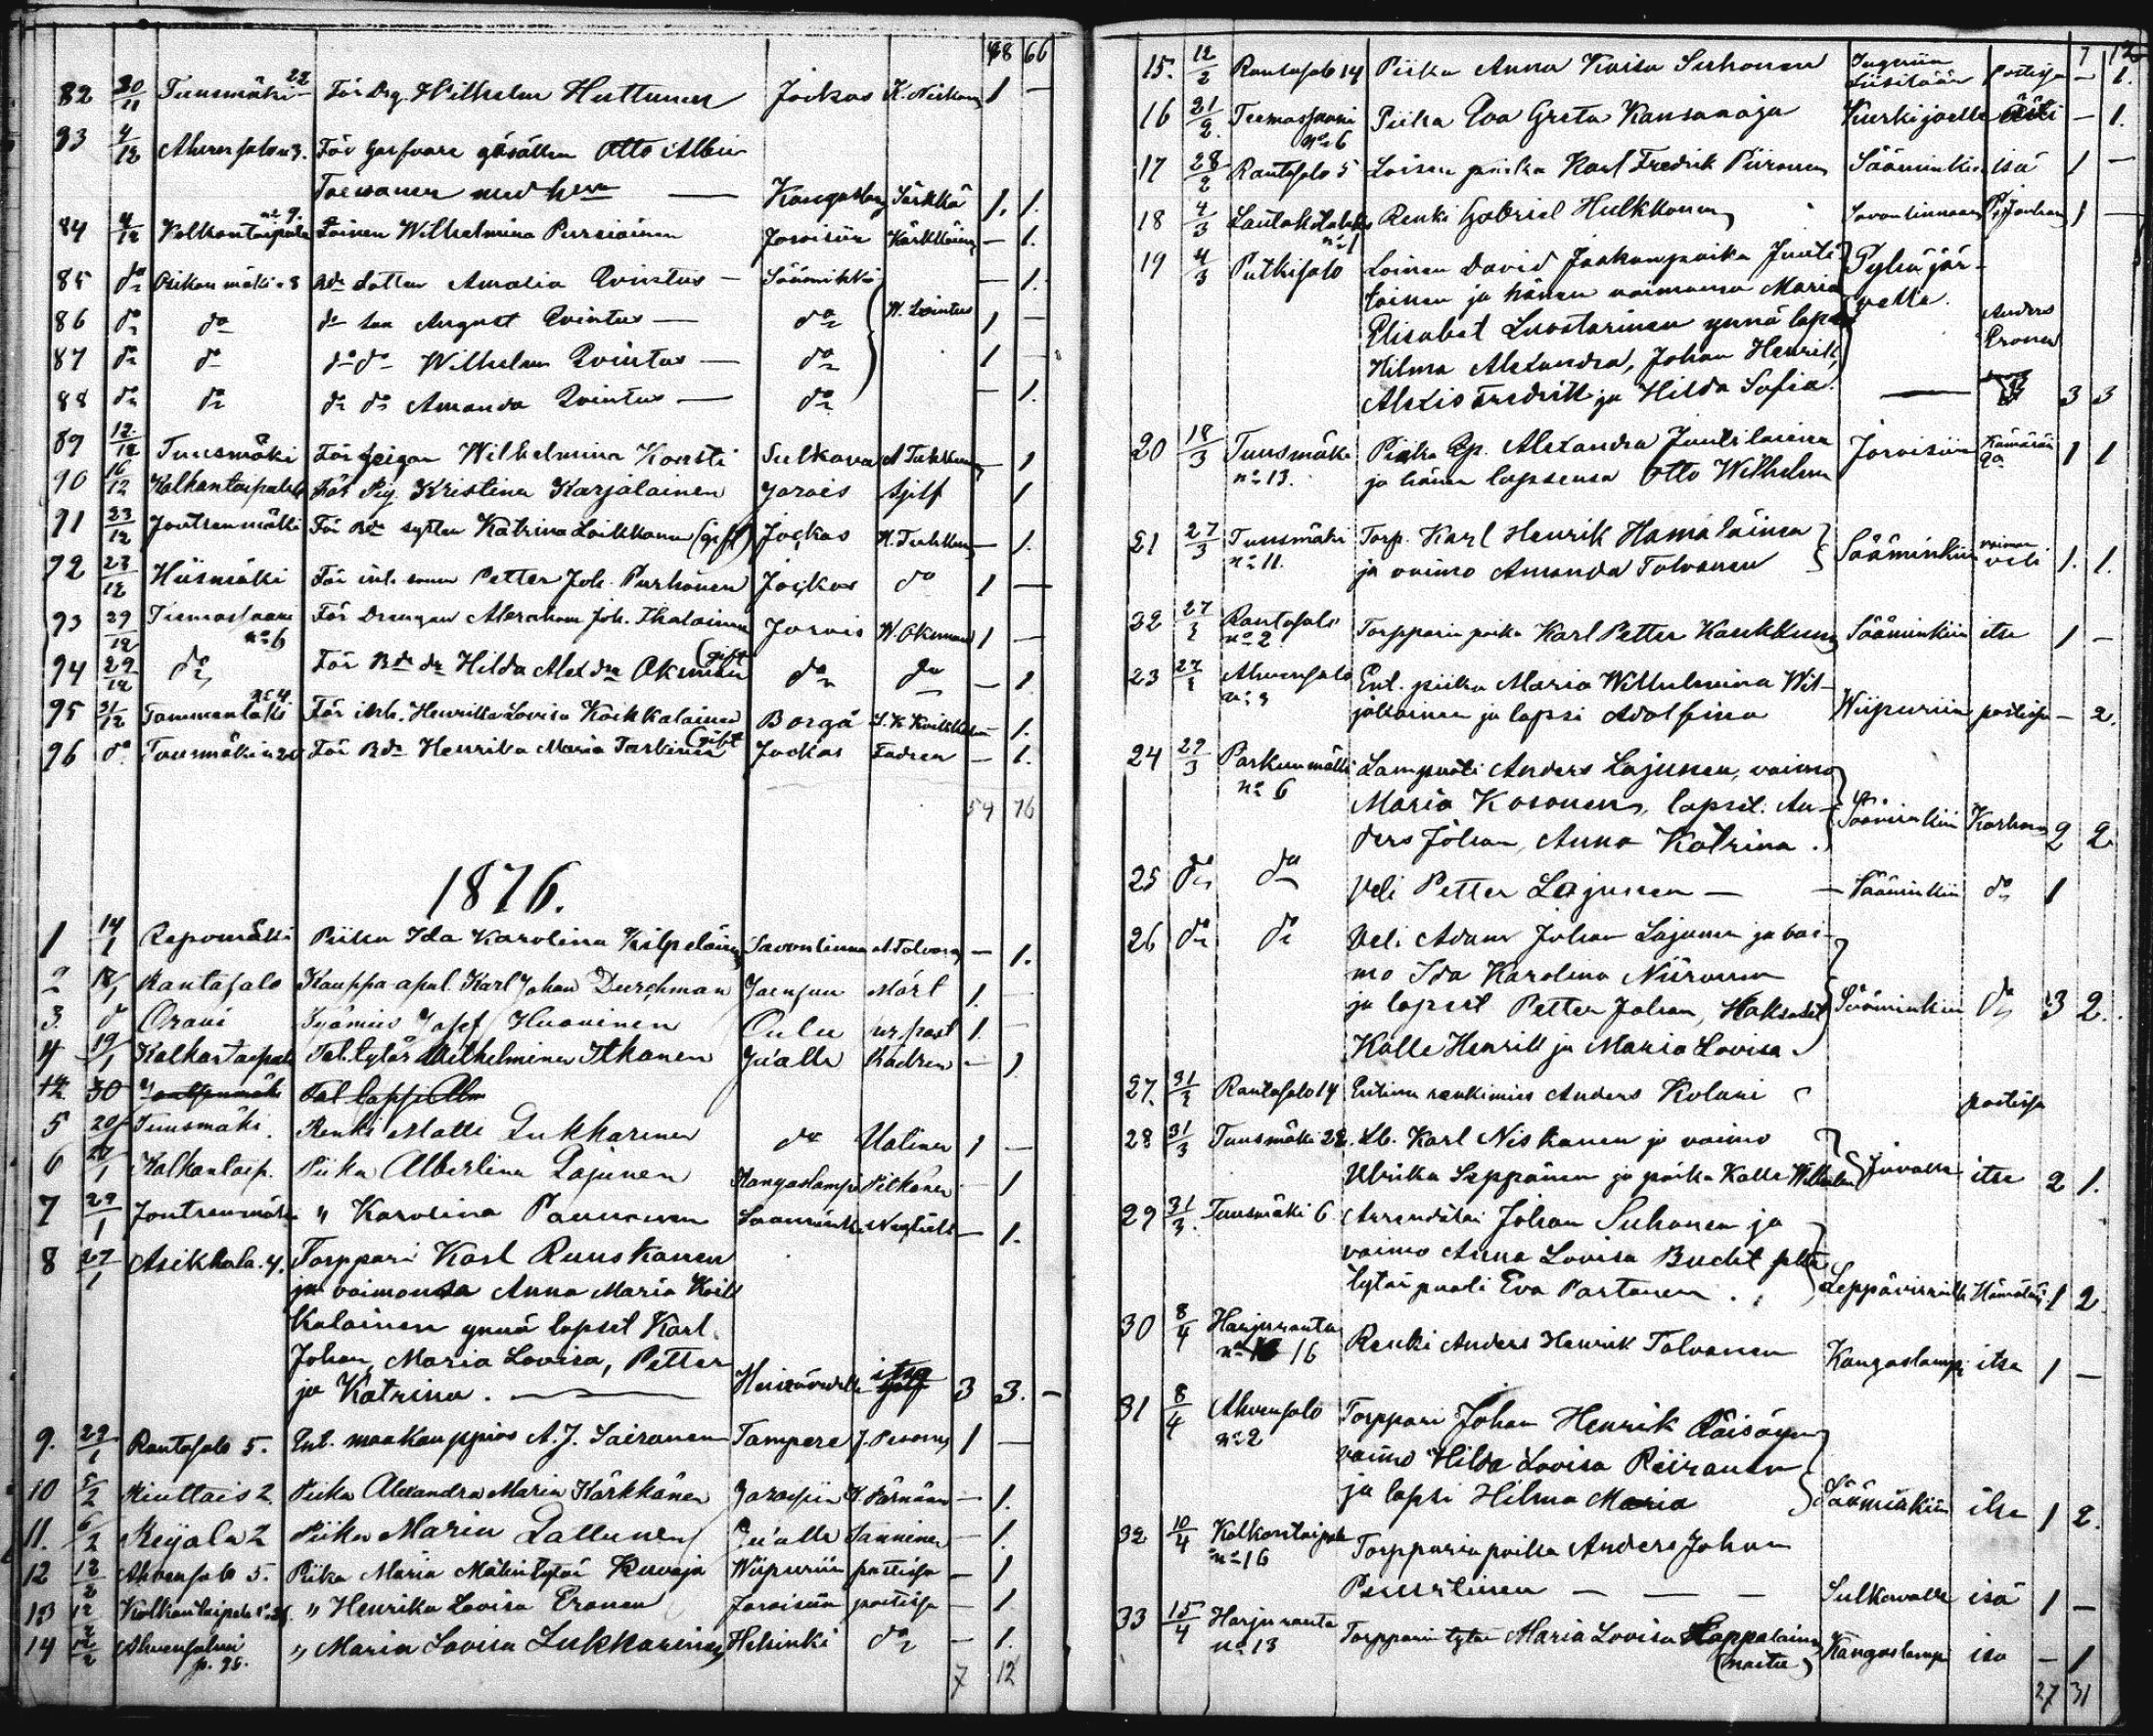 48 66
82 30/11 Tuusmäki 22 För Drg. Wilhelm Huttunen Jockas 1 —
83 4/12 Ahvensalo n 3. För Otto Albin
med hru — Kangaslampi Särkkä 1. 1.
84 4/12 Kolkontaipale no 9. Loinen Wilhelmina Pursiainen Joroisiin Kärkkäinen — 1.
85 do Pitkenmäki 8 Bde dotter Amalia Qvintus — Sääminki — 1.
86 do do do son August Qvintus — do W. Qvintus 1 —
87 do do do do Wilhelm Qvintus — do 1 —
88 do do do do Amanda Qvintus — do — 1.
89 12/12 Tuusmäki För pigan Wilhelmina Konsti Sulkava A Tukkunen — 1
90 16/12 Kolkontaipale För Pig. Kristina Karjalainen Jorois sjelf 1
91 23/12 Joutsenmäki För Bde syster Katrina Loikkanen (gift) Jockas H. Tukkunen — 1.
92 23/12 Hiismäki För inh. sonen Petter Joh. Purhonen Jockas do 1 —
93 29/12 Tiemassaari no 6 För Drengen Abraham Joh. Ikalainen Jorois W. Okman 1 —
94 29/12 do För Bde dr Hilda Alexdra Okman (gift) do do — 1
95 31/12 Tammenlaksi no 4 För inh. Henrika Lovisa Koikkalainen Borgå — 1.
96 do Tuusmäki n 20 För Bde Henrika Maria Tarkinen (gift Jockas Fadren — 1.
59 76
1876.
1 14/1 Repomäki Piika Ida Karolina Kilpeläinen Savonlinna A. Tolvanen — 1.
2 18/1 Rantasalo Kauppa apul. Karl Johan Durchman Joensuu Märt 1. —
3. do Oravi Työmies Josef Huovinen Oulu ur. past 1. —
4 19/1 Kolkontaipale Tal. tytär Wilhelmina Itkonen Jualle Kadren — 1
12 30 Joutsenmäki Tal lapsi Alb
5 20/1 Tuusmäki. Renki Matti Lukkarinen do Uatinen 1 —
6 27/1 Kolkontaip. Piika Albertina Lajunen Kangaslampi Pitkänen — 1
7 29/1 Joutsenmäki " Karolina Paunonen Sääminki — 1.
8 27/1 Asikkala. 4. Torppari Karl Ruuskanen
ja vaimonsa Anna Maria Koik
kalainen ynnä lapset Karl
Johan, Maria Lovisa, Petter
ja Katrina. — Heinävedelle itse 3 3. —
9. 29/1 Rantasalo 5. Ent. maakauppias A. J. Sairanen Tampere J. Pesonen 1 —
10 5/2 Kiuttais 2 Piika Alexandra Maria Kärkkänen Joroisiin K. Pärnänen — 1.
11. 6/2 Reijola 2 Piika Maria Lattunen Ju'alle Tanninen — 1.
12 12/2 Ahvensalo 5. Piika Maria Matintytär Kuvaja Wiipuriin postissa — 1
13 12/2 Kolkontaipale " Henrika Lovisa Eronen Joroisiin postissa — 1
14 12/2 Ahvensalmi p. 98. " Maria Lovisa Lukkarinen Helsinki do — 1.
7 12
7 12
15. 12/2 Rantasalo 14 Piika Anna Kaisa Suhonen Ingeriin Liisilään postissa — 1.
16 21/2. Tiemassaari no 6 Piika Eva Greta Kansanaja Kurkijoelle Äiti — 1.
17 28/2 Rantasalo 5 Loisen poika Karl Fredrik Piironen Sääminkiin isä 1 —
18 4/3 no 1 Renki Gabriel Hulkkonen Savonlinnaan 1 —
19 4/3 Putkisalo Loinen David Jaakonpoika Juuti
lainen ja hänen vaimonsa Maria
Elisabet Luostarinen ynnä lapset
Hilma Alexandra, Johan Henrik,
Alexis Fredrik ja Hilda Sofia. Pyhäjär-
vellä. Anders
Eronen — 3 3
20 18/3 Tuusmäki no 13. Piika Ep. Alexandra Juutilainen
ja hänen lapsensa Otto Wilhelm Joroisiin 1 1
21 27/3 Tuusmäki no 11. Torp. Karl Henrik Hämäläinen
ja vaimo Amanda Tolvanen Sääminkiin vaimon veli 1. 1.
22 27/3 Rantasalo no 2 Torpparin poika Karl Petter Kaukkunen Sääminkiin itse 1 —
23 27/3 Ahvensalo no 3 Ent. piika Maria Wilhelmina Wil-
jakainen ja lapsi Adolfina Wiipuriin postissa — 2.
24 29/3 Parkumäki no 6 Lampuoti Anders Lajunen, vaimo
Maria Kosonen, lapset: An-
ders Johan, Anna Katrina. Sääminkiin Korhonen 2 2
25 do do Veli Petter Lajunen — — Sääminkiin do 1
26 do do Veli Adam Johan Lajunen ja vai-
mo Ida Karolina Niiranen
ja lapset Petter Johan,
Kalle Henrik ja Maria Lovisa. Sääminkiin do 3 2.
27. 31/3 Rantasalo 14 Entinen renkimies Anders Kolari postissa
28. 31/3 Tuusmäki 22. Lb. Karl Niskanen ja vaimo
Ulrika Seppänen ja poika Kalle Wilhelm Juvalla itse 2 1.
29 31/3. Tuusmäki 6 Arrendatori Johan Suhonen ja
vaimo Anna Lovisa Bucht sekä
tytär puoli Eva Partanen. Leppävirralle 1 2
30 8/4 Harjuranta no 16 Renki Anders Henrik Tolvanen Kangaslampi itse 1 —
31 8/4 Ahvensalo no 2 Torppari Johan Henrik Räisänen
vaimo Hilda Lovisa Piiranen
ja lapsi Hilma Maria Sääminkiin itse 1 2.
32 10/4 Kolkontaipale no 16 Torpparin poika Anders Johan
— — — Sulkavalle isä 1 —
33 15/4 Harjuranta no 13 Torpparin tytär Maria Lovisa Kappalainen
(naitu) Kangaslampi isä — 1
27 31